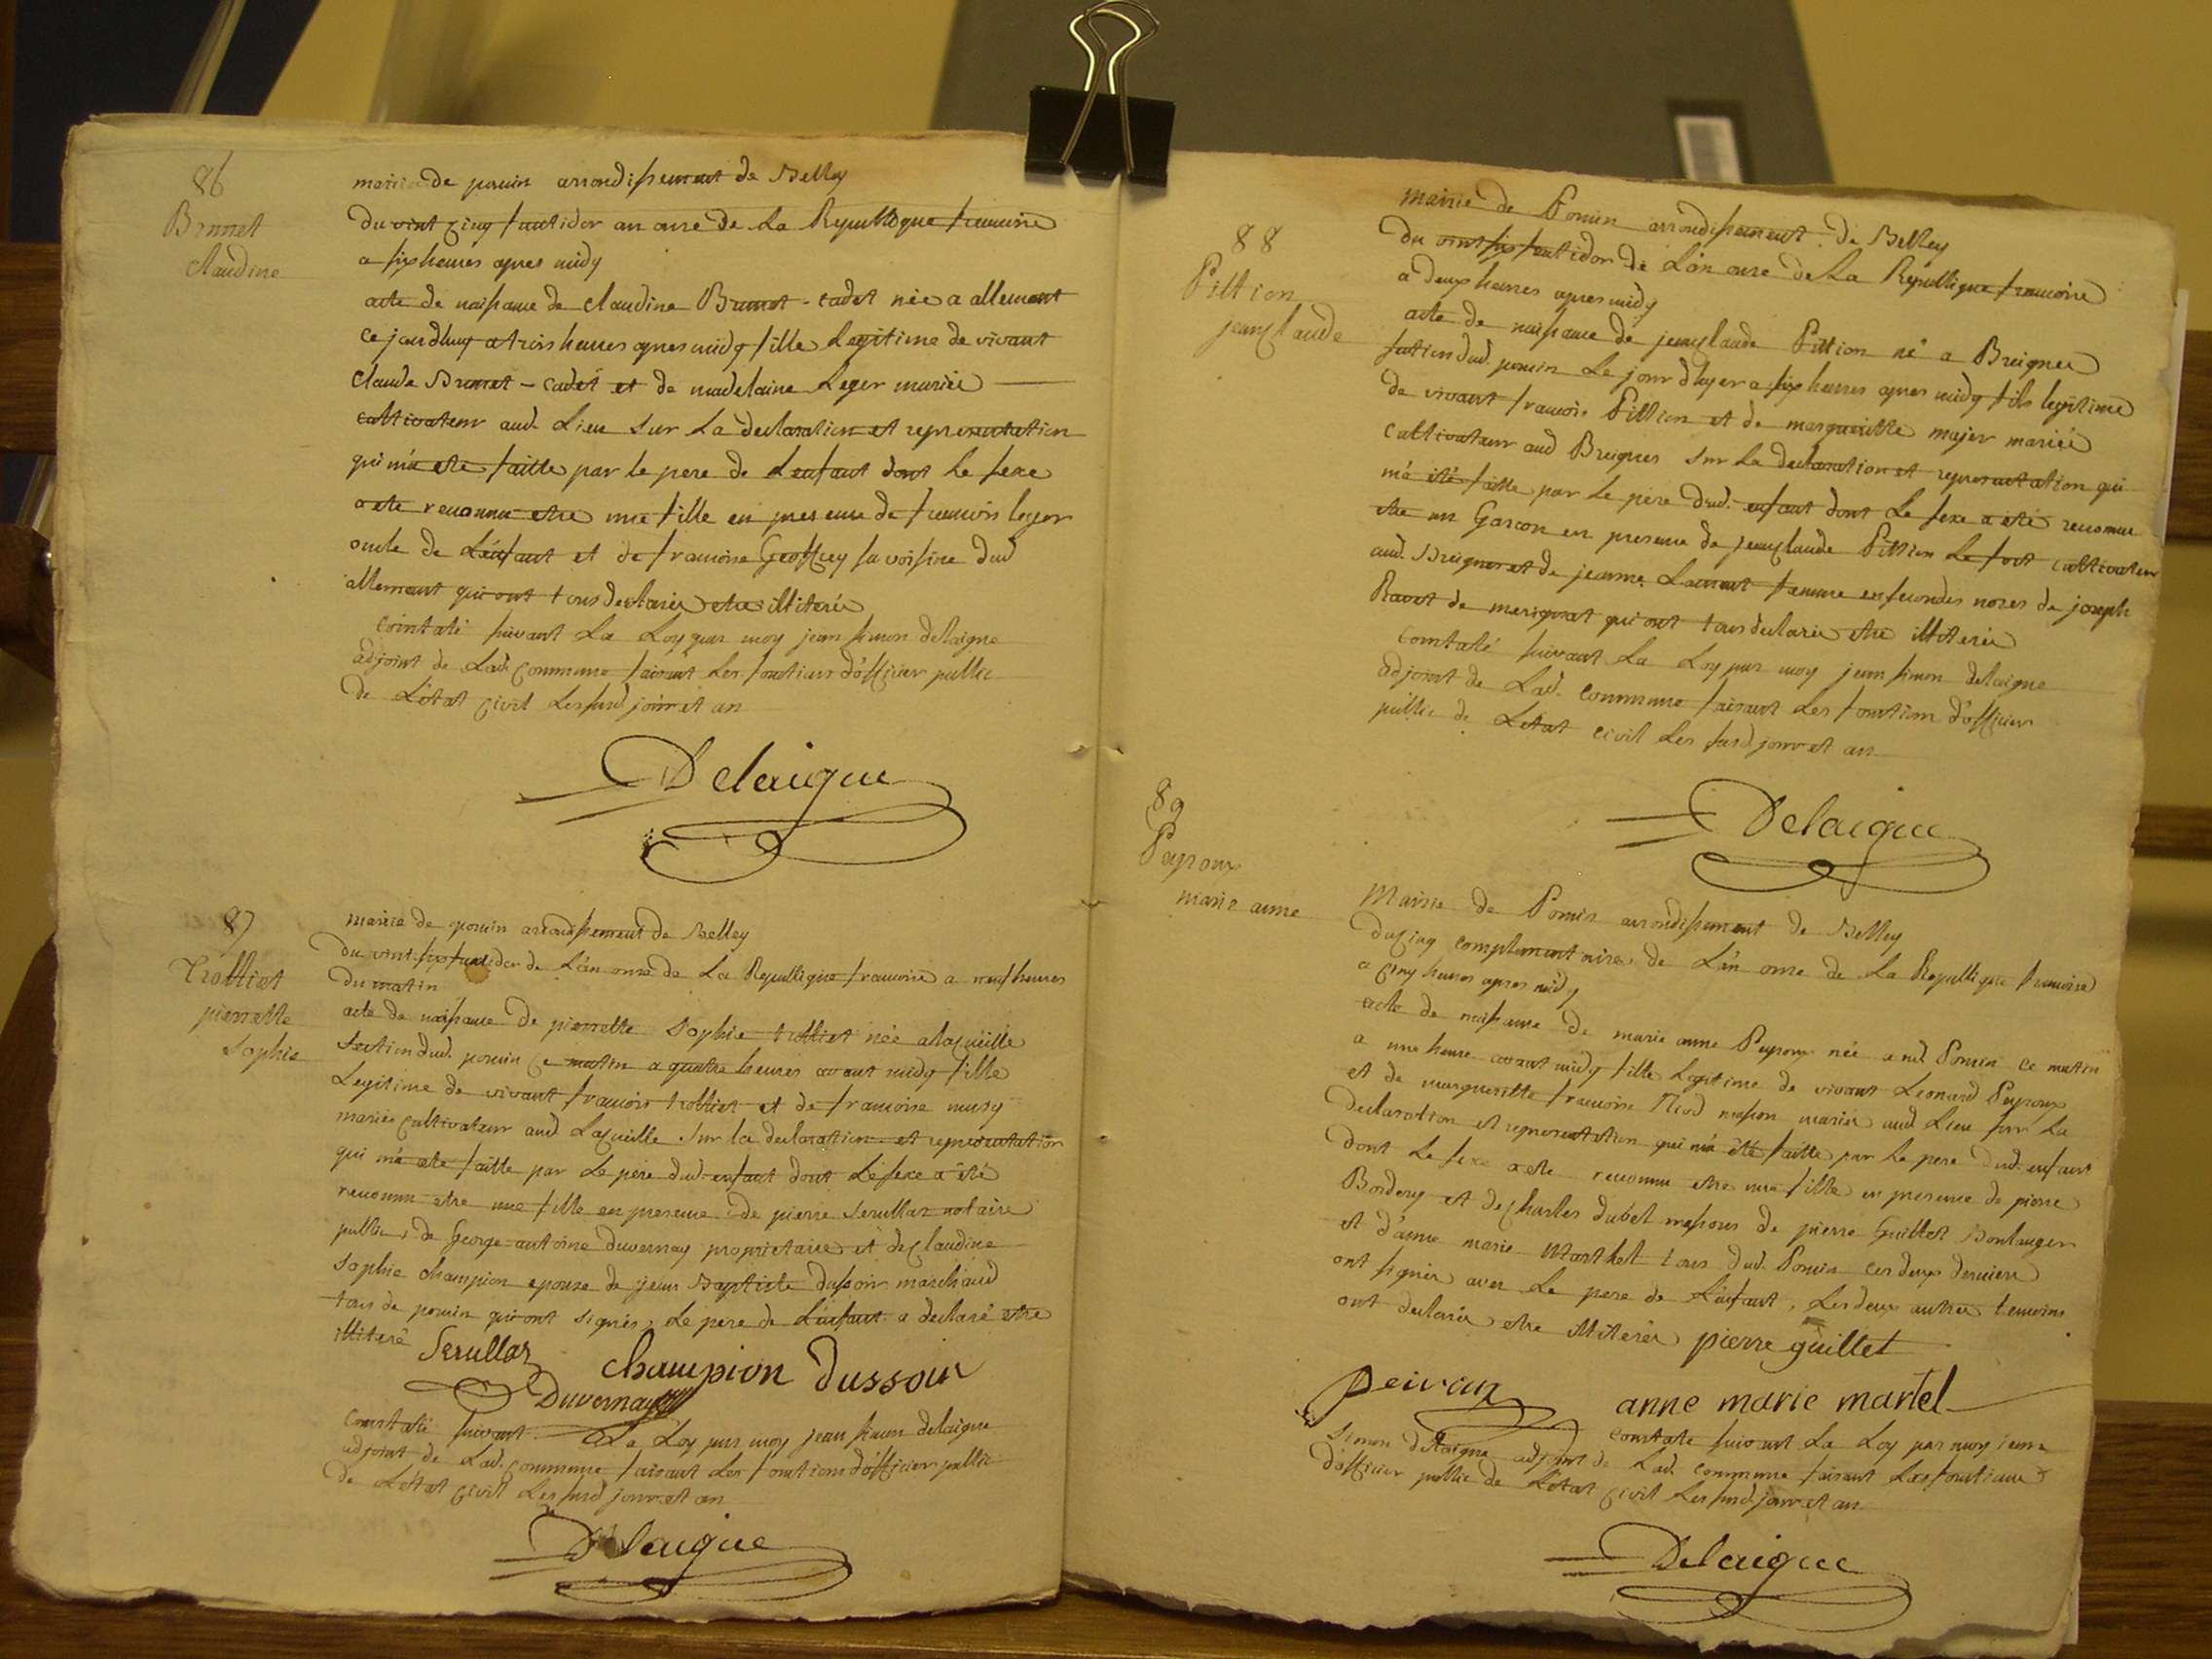 86
Brunet
claudine
mairie de poncin arrondissement de Belley
du vint cinq fructidor an onze de La Republique francoise
a six heures apres midy
acte de naissance de claudine Brunet - cadet née a allement
ce jourdhuy a trois heures apres midy fille Legitime de vivant
claude Brunet - cadet et de madelaine Leger mariés
cultivateur aud. Lieu sur La declaration et representation
qui m'a eté faitte par le pere de L'enfant dont le sexe
a eté reconnu etre une fille en presence de francois leger
oncle de L'enfant et de francoise Geoffrey sa voisine dud
allement qui ont tous declarés etre illiterés
constaté suivant La Loy par moy jean simon delaigue
adjoint de Lad. commune faisant Les fonctions d'officier public
de L'etat civil Les susd jour et an
Delaigue
87
Trolliet
pierrette
sophie
mairie de poncin arrondissement de Belley
du vint six fructidor de L'an onze de La Republique francoise a neuf heures
du matin
acte de naissance de pierrette sophie trolliet née a Lacueille
section dud. poncin ce matin a quatre heures avant midy fille
Legitime de vivant francois trolliet et de francoise musy
mariés cultivateur aud Lacueille sur la declaration et representation
qui m'a eté faitte par Le pere dud. enfant dont Le sexe a été
reconnu etre une fille en presence de pierre serullaz notaire
public, de George antoine duvernay proprietaire et de claudine
sophie champion epouse de jean Baptiste dussoir marchand
tous de poncin qui ont signés, Le pere de L'enfant a declaré etre
illiteré
Serullaz
champion dussoir
Duvernay
constaté suivant La Loy par moy jean simon delaigue
adjoint de Lad. commune faisant Les fonctions d'officier public
de L'etat civil Les susd jour et an
Delaigue
88
Pittion
jean claude
mairie de Poncin arrondissement de Belley
du vint six fructidor de L'an onze de La Republique francoise
a deux heures apres midy
acte de naissance de jean claude Pittion né a Breignes
section dud. poncin Le jour d'hyer a six heures apres midy fils legitime
de vivant francois Pittion et de margueritte majer mariés
cultivateur aud Breignes sur La declaration et representation qui
m'a été faitte par Le pere dud. enfant dont Le sexe a été reconnu
etre un Garcon en presence de jean claude Pittion Le fort cultivateur
aud. Breignes et de jeanne Laurent femme en secondes noces de joseph
Ravet de merignat qui ont tous declarés etre illiterés
constaté suivant La Loy par moy jean simon delaigue
adjoint de Lad. commune faisant Les fonction d'officier
public de L'etat civil Les susd jour et an
Delaigue
89
Peyroux
marie anne
Mairie de Poncin arrondissement de Belley
du cinq complementaire de L'an onze de La Republique francoise
a cinq heures apres midy
acte de naissance de marie anne Peyroux née aud. Poncin ce matin
a une heure avant midy fille Legitime de vivant Leonard Peyroux
et de margueritte francoise Niod masson mariés aud. Lieu sur La
declaration et representation qui m'a été faitte par Le pere dud. enfant
dont Le sexe a ete reconnu etre une fille en presence de pierre
Bordery et de charles dubet massons de pierre Guillet Boulanger
et d'anne marie Marthel tous dud. Poncin ces deux derniers
ont signés avec Le pere de L'enfant, Les deux autres temoins
ont declarés etre illiterés
pierre guillet
peiroux
anne marie martel
constaté suivant La Loy par moy jean
simon delaigue adjoint de Lad. commune faisant Les fonctions
d'officier public de L'etat civil Les susd. jour et an
Delaigue